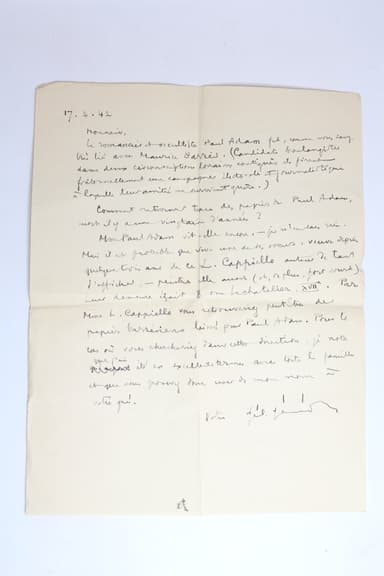 17. 2. 42
Monsieur,
Le romancier et occultiste Paul Adam fut, comme vous savez
très lié avec Maurice Barrès. (Candidats boulangistes
dans deux circonscriptions lorraines contiguës ils firent
fraternellement une campagne électorale et journalistique
à laquelle leur amitié ne survécut guère.)
Comment retrouver trace des papiers de Paul Adam,
mort il y a une vingtaine d'années ?
Mme Paul Adam vit-elle encore, je n'en sais rien.
Mais il est probable que vive une de ses sœurs, veuve depuis
quelques trois ans de ce L. Cappiello auteur de tant
d'affiches, peintre elle aussi (et, de plus, fort sourde)
Leur demeure était rue Lechatelier, XVIIe. Par
Mme L. Cappiello vous retrouverez peut-être des
papiers barrésiens laissés par Paul Adam. Pour le
cas où vous chercheriez dans cette direction, je note
que j'ai été en excellents termes avec toute la famille
et que vous pouvez donc user de mon nom à
votre gré.
Votre